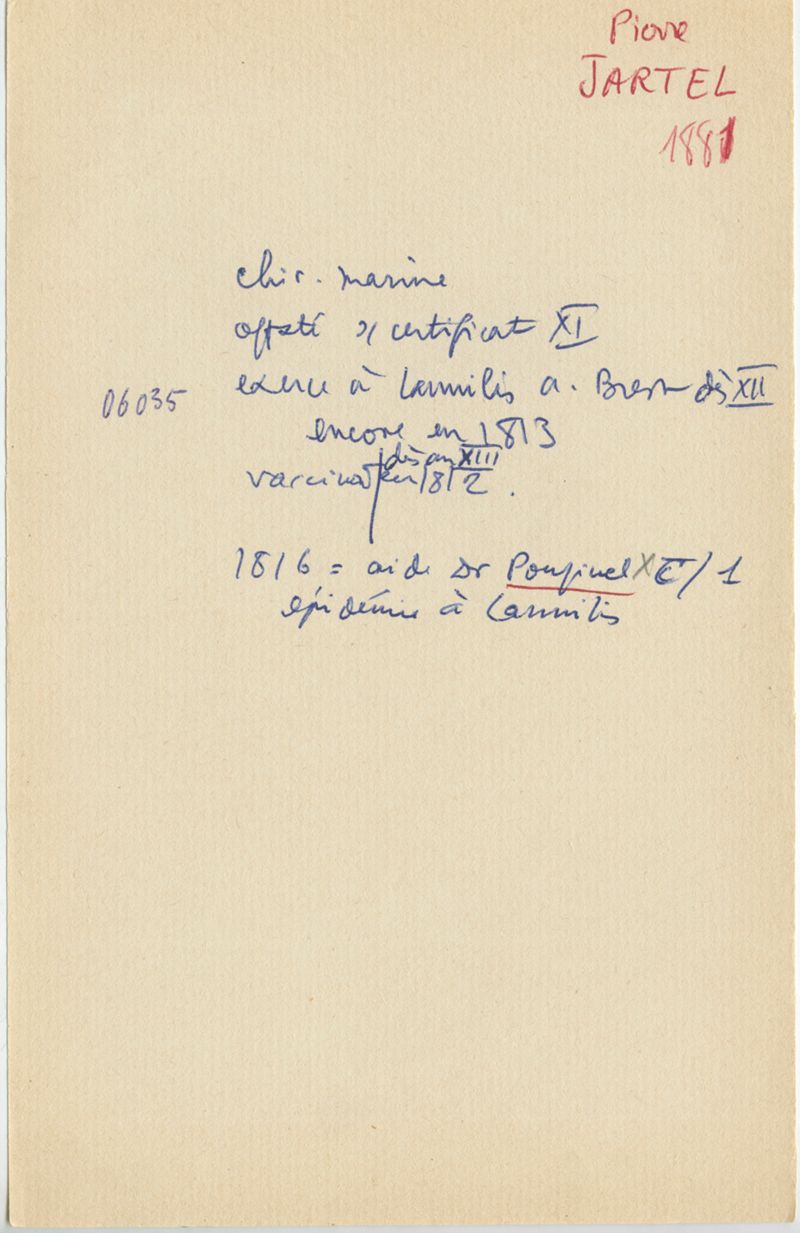 Pierre
JARTEL
1881
chir. marine
offsté certificat XI
exerce à Lannilis a. Brest dès XII
06035
encore en 1813
dès an XIII
vaccinat en 1812.
1816 = aide Dr Pouginel X C/1
épidémie à Lannilis